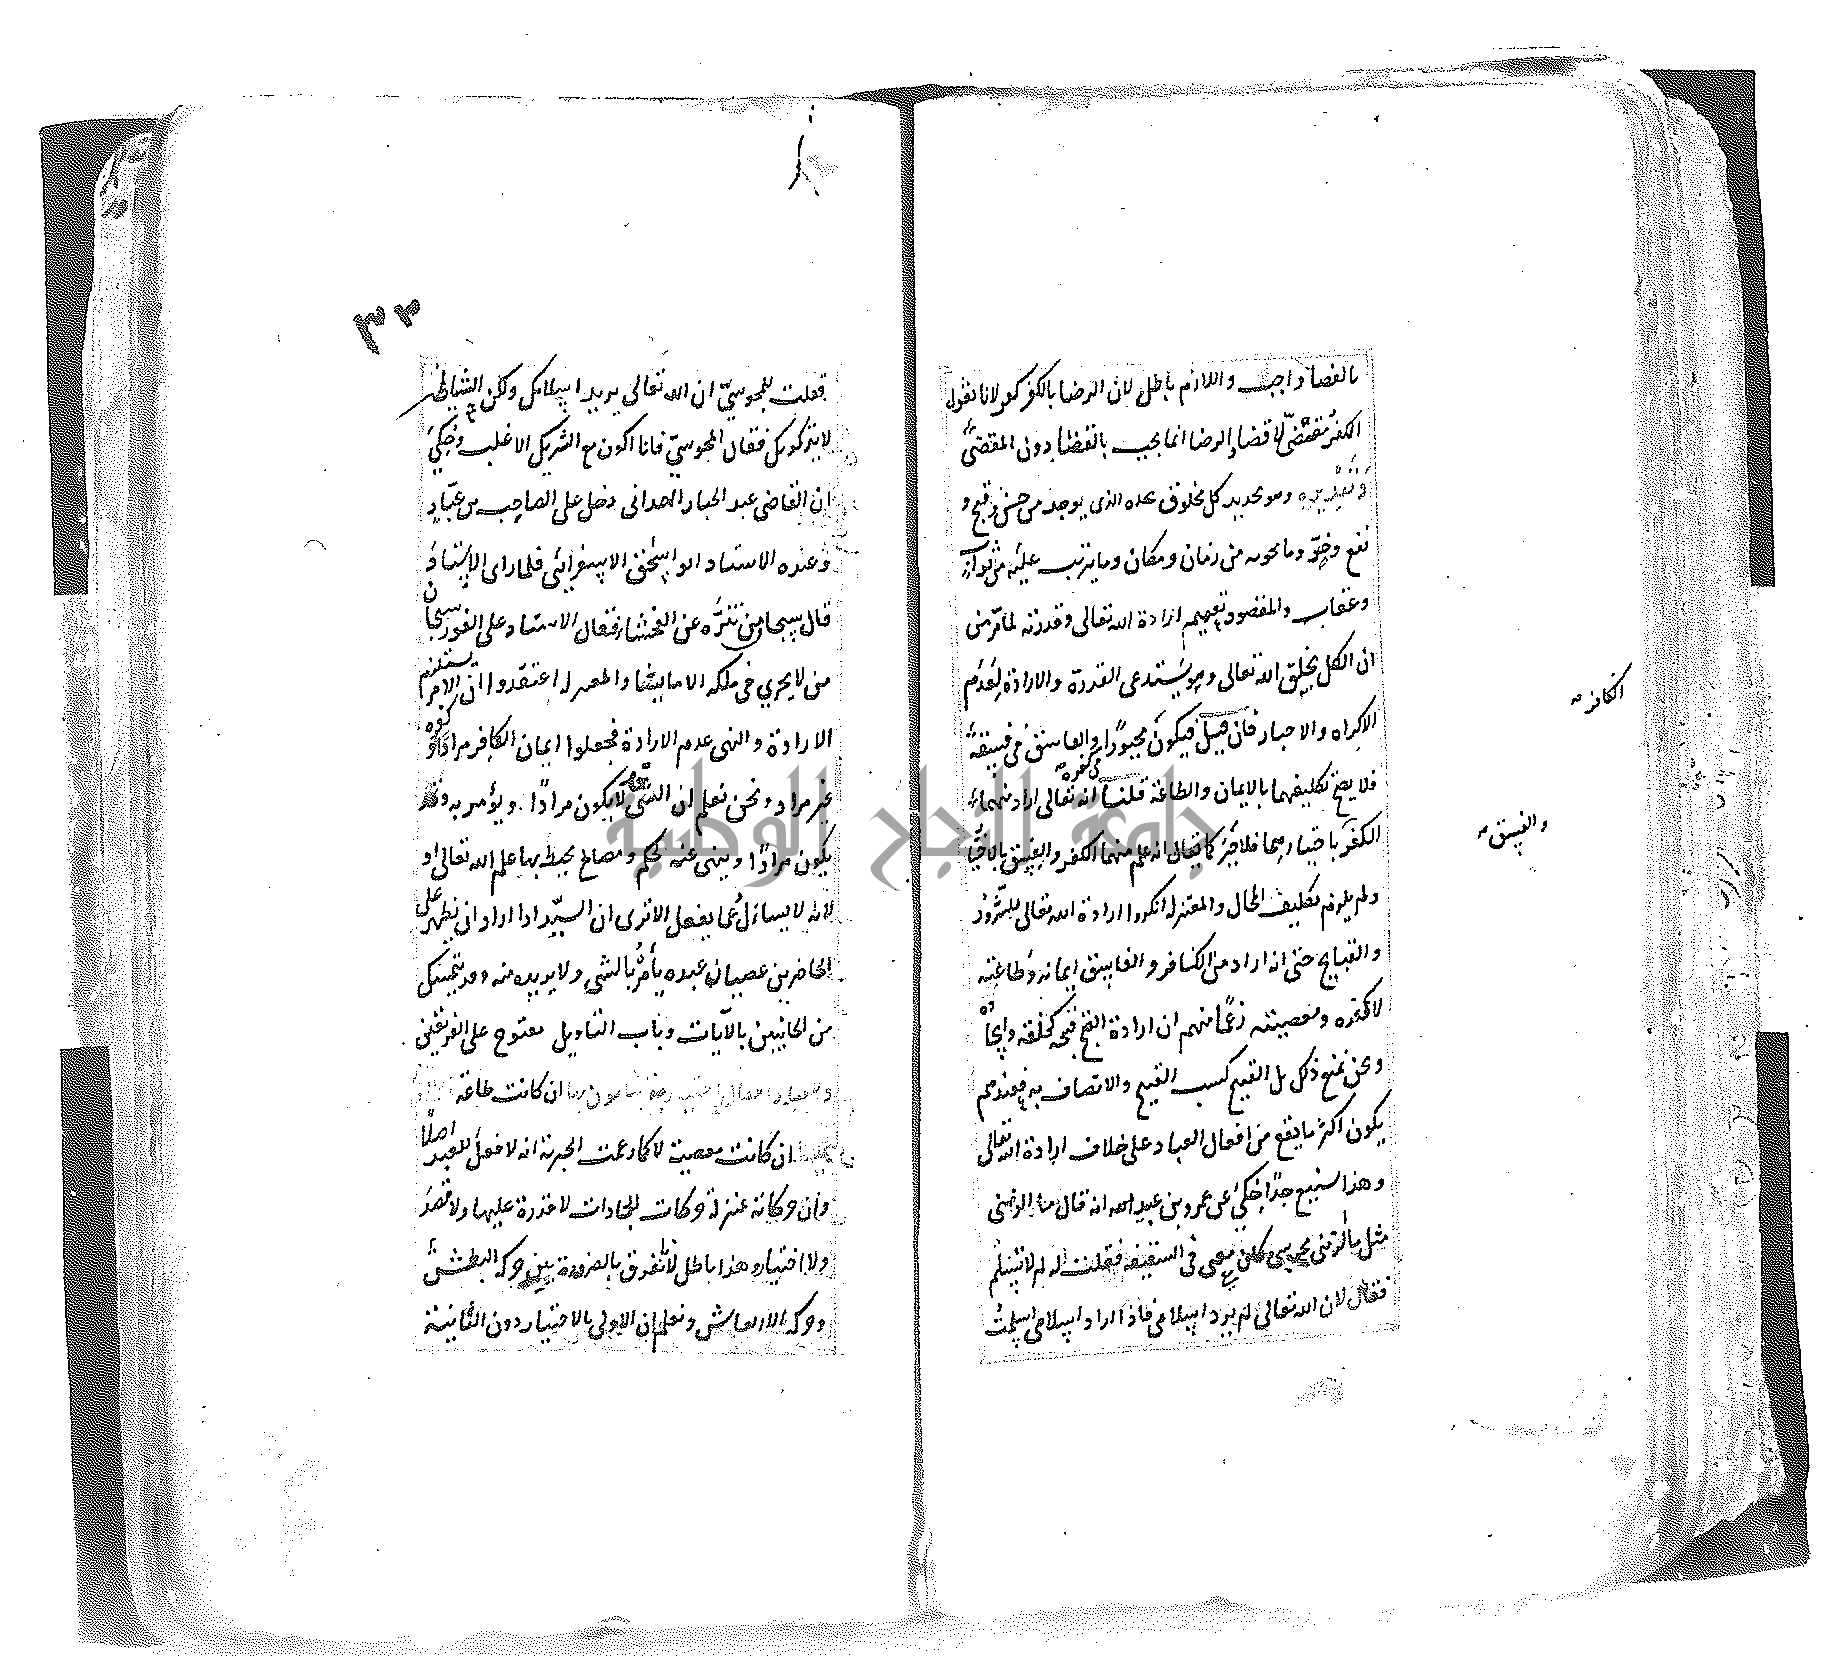 بالقضاء واجب واللازم باطل لان الرضا بالكفر كفر لانا نقول
الكفر مقتضىً لا قضاء والرضا انما يجب بالقضاء دون المقتضى
وتقديره وهو تحديد كل مخلوق بحده الذى يوجد من حسن وقبح و
نفع وضرّ وما يحويه من زمان ومكان وما يترتب عليه من ثواب
وعقاب والمقصود تعميم ارادة الله تعالى وقدرته لما مرّ من
ان الكل بخلق الله تعالى وهو يستدعى القدرة والارادة لعدم
الاكراه والاجبار فان قيل فيكون الكافر مجبورًا فى كفره والفاسق فى فسقه
فلا يصح تكليفهما بالايمان والطاعة قلنا انه تعالى اراد منهما
الكفر والفسق باختيارهما فلا جبر كما انه تعالى علم منهما الكفر والفسق بالاختيار
ولم يلزم تكليف المحال والمعتزلة انكروا ارادة الله تعالى للشرور
والقبايح حتى انه اراد من الكافر والفاسق ايمانه وطاعته
لا كفره ومعصيته زعمًا منهم ان ارادة القبح قبيحة كخلقه وايجاده
ونحن نمنع ذلك بل القبيح كسب القبيح والاتصاف به فعندهم
يكون اكثر ما يقع من افعال العباد على خلاف ارادة الله تعالى
وهذا شنيع جدًا حكى عن عمرو بن عبيد انه قال ما الزمنى
مثل ما الزمنى مجوسى كان معى فى السفينة فقلت له لم لا تسلم
فقال لان الله تعالى لم يرد اسلامى فاذا اراد اسلامى اسلمت
٣٣
فقلت للمجوسىّ ان الله تعالى يريد اسلامك ولكن الشياطين
لا يتركونك فقال المجوسىّ فانا اكون مع الشريك الاغلب وحكى
ان القاضى عبد الجبار الهمدانى دخل على الصاحب بن عبّاد
وعنده الاستاد ابو اسحق الاسفرائنى فلما راى الاستاد
قال سبحان من تنزّه عن الفحشاء فقال الاستاد على الفور سبحان
من لا يجرى فى ملكه الا ما يشاء والمعتزلة اعتقدوا ان الامر يستلزم
الارادة والنهى عدم الارادة فجعلوا ايمان الكافر مرادًا وكفره
غير مراد ونحن نعلم ان الشئ قد لا يكون مرادًا ويؤمر به وقد
يكون مرادًا وينهى عنه لحكم ومصالح يحيط بها علم الله تعالى او
لانه لا يسأل عما يفعل الا ترى ان السيّد اذا اراد ان يظهر على
الحاضرين عصيان عبده يأمره بالشئ ولا يريده منه وقد يتمسك
من الجانبين بالآيات وباب التأويل مفتوح على الفريقين
وللعباد افعال اختيارية يثابون بها ان كانت طاعة
ان كانت معصية لا كما زعمت الجبرية انه لا فعل للعبد اصلًا
وان حركاته بمنزلة حركات الجمادات لا قدرة عليها ولا قصد
ولا اختيار وهذا باطل لانا نفرق بالضرورة بين حركة البطش
وحركة الارتعاش ونعلم ان الاولى بالاختيار دون الثانية
جامعة النجاح الوطنية